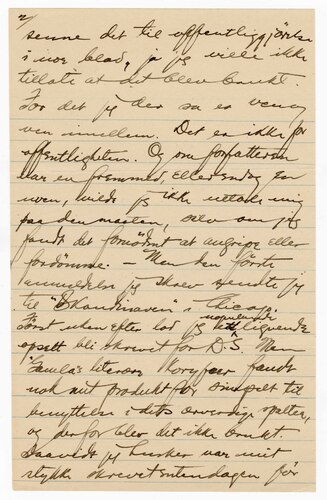 2/
denne det til offentliggjörelse
i nor blad, ja jeg vilde ikke
tillate at det blev brukt.
For det jeg der sa er venn og
ven imellem. Det er ikke for
offentligheten. Og om forfatteren
var en fremmed, eller endog en
uven, vilde jeg ikke uttale mig
paa den maaten, selv om jeg
fandt det fornödent at angripe eller
fordömme. — Men den förste
anmeldelse jeg skrev sendte jeg
til "Skandinaven" i Chicago.
Först uken efter lod jeg et lignende
opsett bli skrevet for D.S. Men
literære Koryfæer fandt
nok mit produkt for simpelt til
benyttelse i dets ærverdige spalter,
og derfor blev det ikke brukt.
Saavidt jeg husker var mit
stykke skrevet